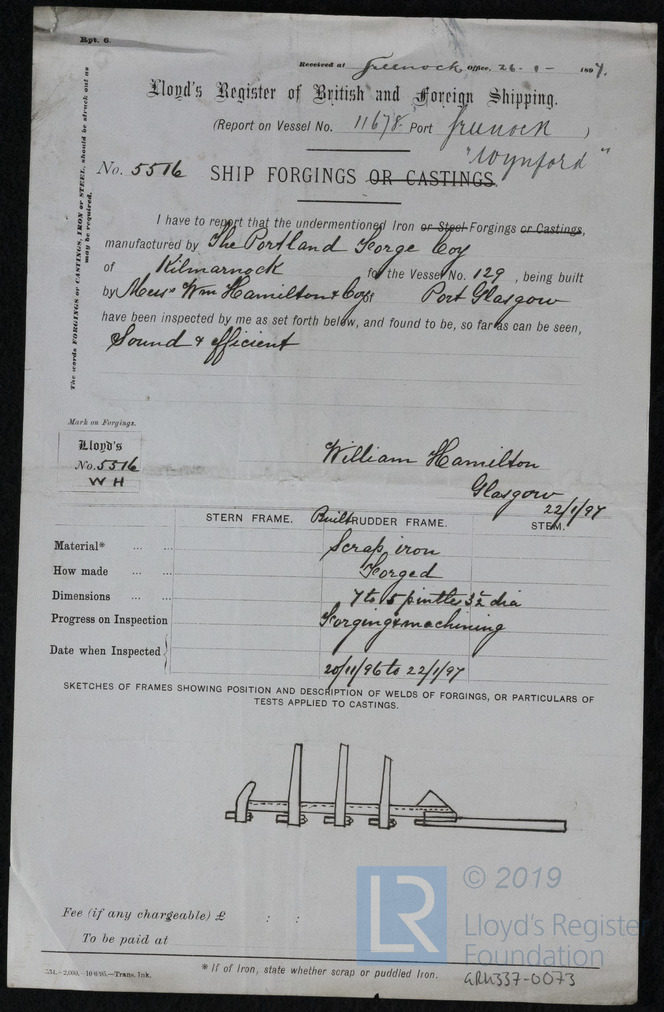 Rpt. 6.
Received at Greenock Office, 26 - 1 - 1897.
Lloyd's Register of British and Foreign Shipping.
(Report on Vessel No. 11678. Port Greenock )
"Wynford"
No. 5516 SHIP FORGINGS OR CASTINGS.
The words FORGINGS or CASTINGS, IRON or STEEL, should be struck out as
may be required.
I have to report that the undermentioned Iron or Steel Forgings or Castings,
manufactured by The Portland Forge Coy
of Kilmarnock for the Vessel No. 129 , being built
by Messrs Wm Hamilton & Coy of Port Glasgow
have been inspected by me as set forth below, and found to be, so far as can be seen,
Sound & efficient
Mark on Forgings.
Lloyd's
No. 5516
W H
William Hamilton
Glasgow
22/1/97
STERN FRAME. Built RUDDER FRAME. STEM.
Material* ... ... Scrap iron
How made ... ... Forged
Dimensions ... ... 7 to 5 pintles 3½ dia
Progress on Inspection Forging & machining
Date when Inspected 20/11/96 to 22/1/97
SKETCHES OF FRAMES SHOWING POSITION AND DESCRIPTION OF WELDS OF FORGINGS, OR PARTICULARS OF
TESTS APPLIED TO CASTINGS.
Fee (if any chargeable) £ : :
To be paid at
* If of Iron, state whether scrap or puddled Iron.
554.-2,000.-10/6/95.-Trans. Ink.
LR
© 2019
Lloyd's Register
Foundation
GRK337-0073